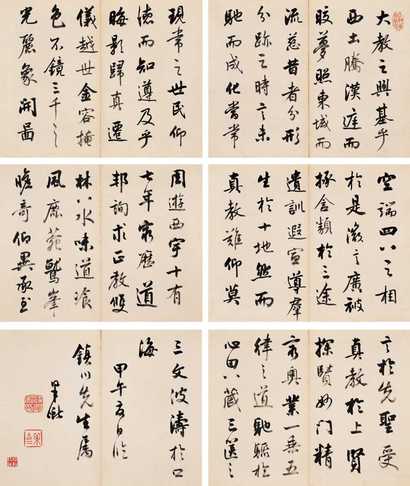 大教之興基乎
西土騰漢庭而
皎夢照東域而
流慈昔者分形
分跡之時言未
馳而成化當常
現常之世民仰
德而知遵及乎
晦影歸真遷
儀越世金容掩
色不鏡三千之
光麗象開圖
空端四八之相
於是微言廣被
拯含類於三途
遺訓遐宣導群
生於十地然而
真教難仰莫
周遊西宇十有
七年窮歷道
邦詢求正教雙
林八水味道飡
風鹿菀鷲峯
瞻奇仰異承至
言於先聖受
真教於上賢
探賾妙門精
窮奧業一乘五
律之道馳驟於
心田八藏三篋之
三文波濤於口
海
甲午夏日臨
鎮川先生屬